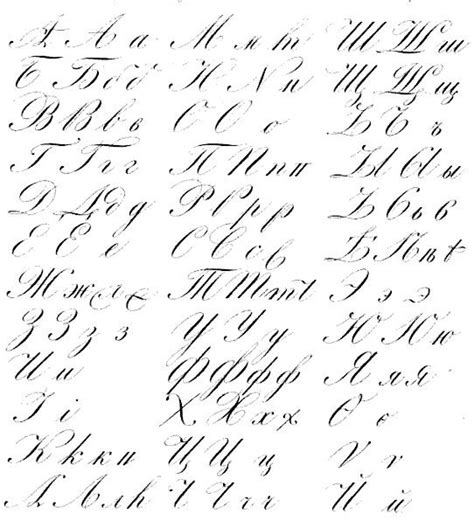 А А а М м т Ш Ш ш
Б Б б б Н N н Щ Щ щ
В В в в О О о Ъ Ъ ъ
Г Г г г П П п н Ы Ы ы
Д Д д д Р Р р р Ь Ь ь
Е Е е С С с Ѣ Ѣ ѣ
Ж ж Т Т т т Э э э
З З з з У У у Ю Ю ю
И и Ф Ф ф ф Я я я
І і Х Х х х Ѳ ѳ
К к к н Ц Ц ц Ѵ ѵ
Л Л л Ч Ч ч ч Й й